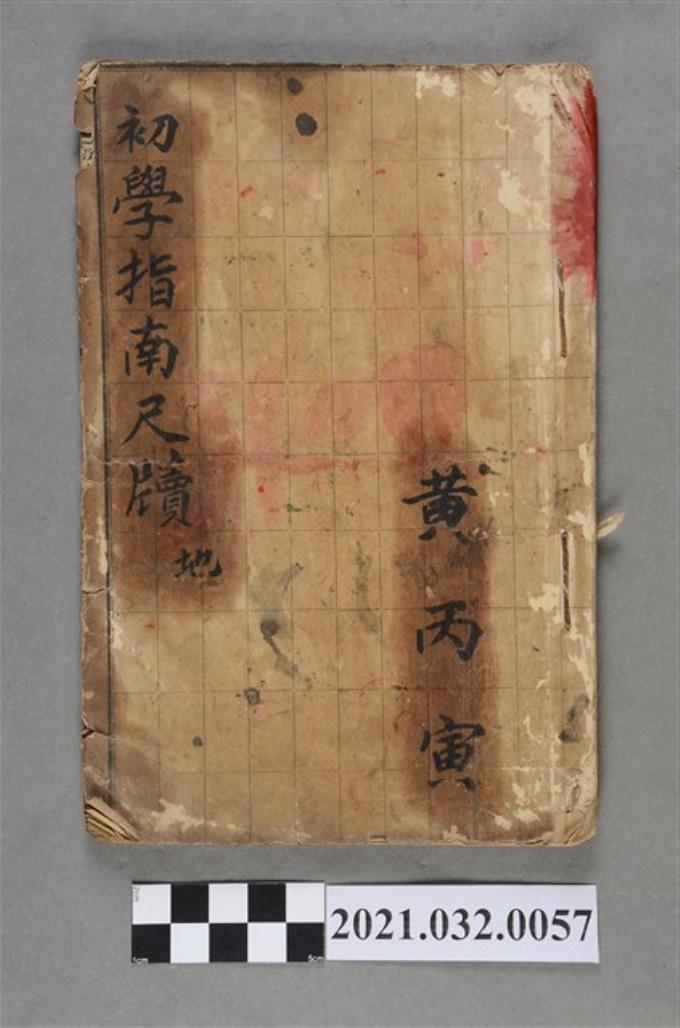 初學指南尺牘 地
黃丙寅
2021.032.0057